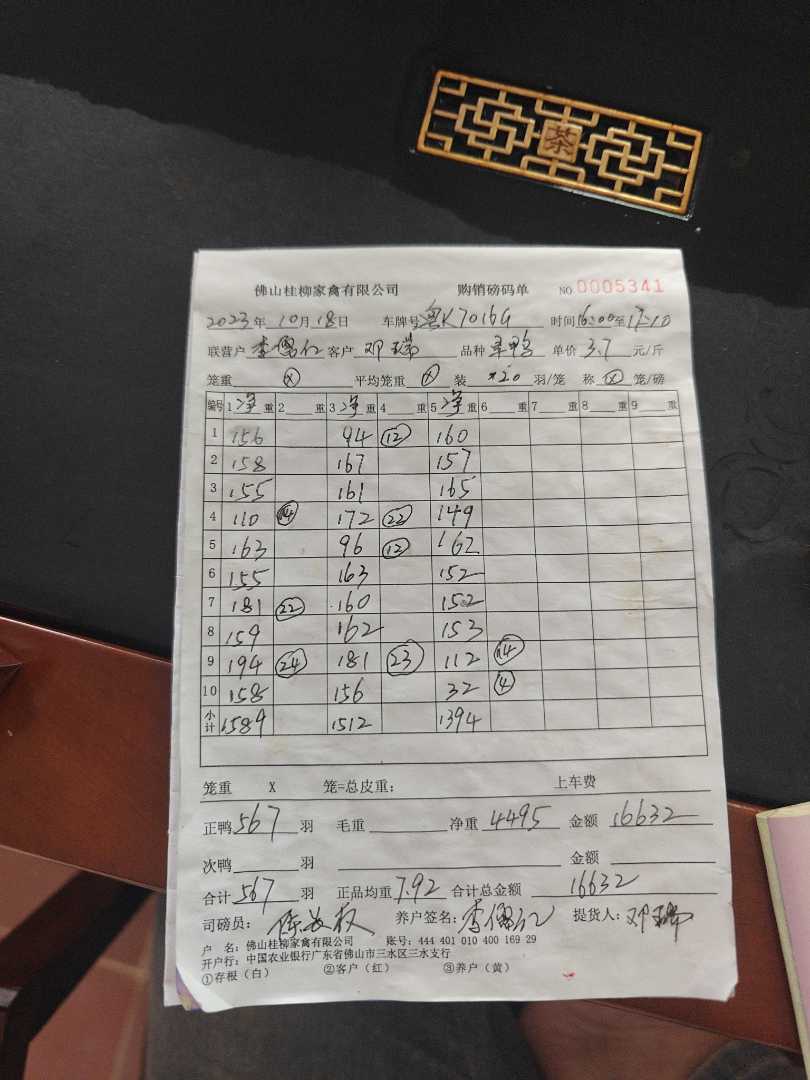 茶
佛山桂柳家禽有限公司 购销磅码单 NO 0005341
2023年10月18日 车牌号 粤K7016G 时间16:00至17:10
联营户 李 仁 客户 邓瑞 品种 单价 3.7 元/斤
笼重 X 平均笼重 X 装 ×20 羽/笼 称 X 笼/磅
编号 1 净重 2 重 3 净重 4 重 5 净重 6 重 7 重 8 重 9 重
1 156 94 12 160
2 158 167 157
3 155 161 165
4 110 14 172 22 149
5 163 96 12 162
6 155 163 152
7 181 22 160 152
8 159 162 153
9 194 24 181 23 112 14
10 158 156 32 4
小计 1589 1512 1394
笼重 X 笼=总皮重: 上车费
正鸭 567 羽 毛重 净重 4495 金额 16632
次鸭 羽 金额
合计 567 羽 正品均重 7.92 合计总金额 16632
司磅员: 陈 权 养户签名: 李 仁 提货人: 邓瑞
户 名: 佛山桂柳家禽有限公司 账号: 444 401 010 400 169 29
开户行: 中国农业银行广东省佛山市三水区三水支行
①存根(白) ②客户(红) ③养户(黄)